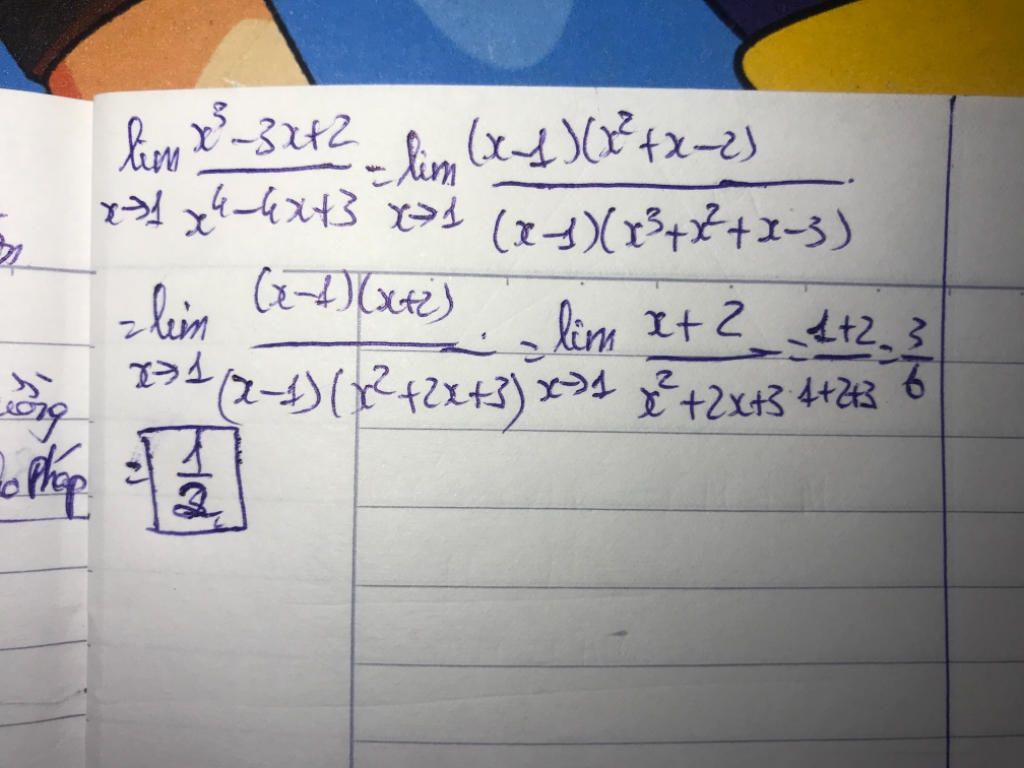 lim x→1 (x³-3x+2)/(x⁴-4x+3) = lim x→1 ((x-1)(x²+x-2))/((x-1)(x³+x²+x-3))
= lim x→1 ((x-1)(x+2))/((x-1)(x²+2x+3)) = lim x→1 (x+2)/(x²+2x+3) = (1+2)/(1+2+3) = 3/6
= 1/2
pháp